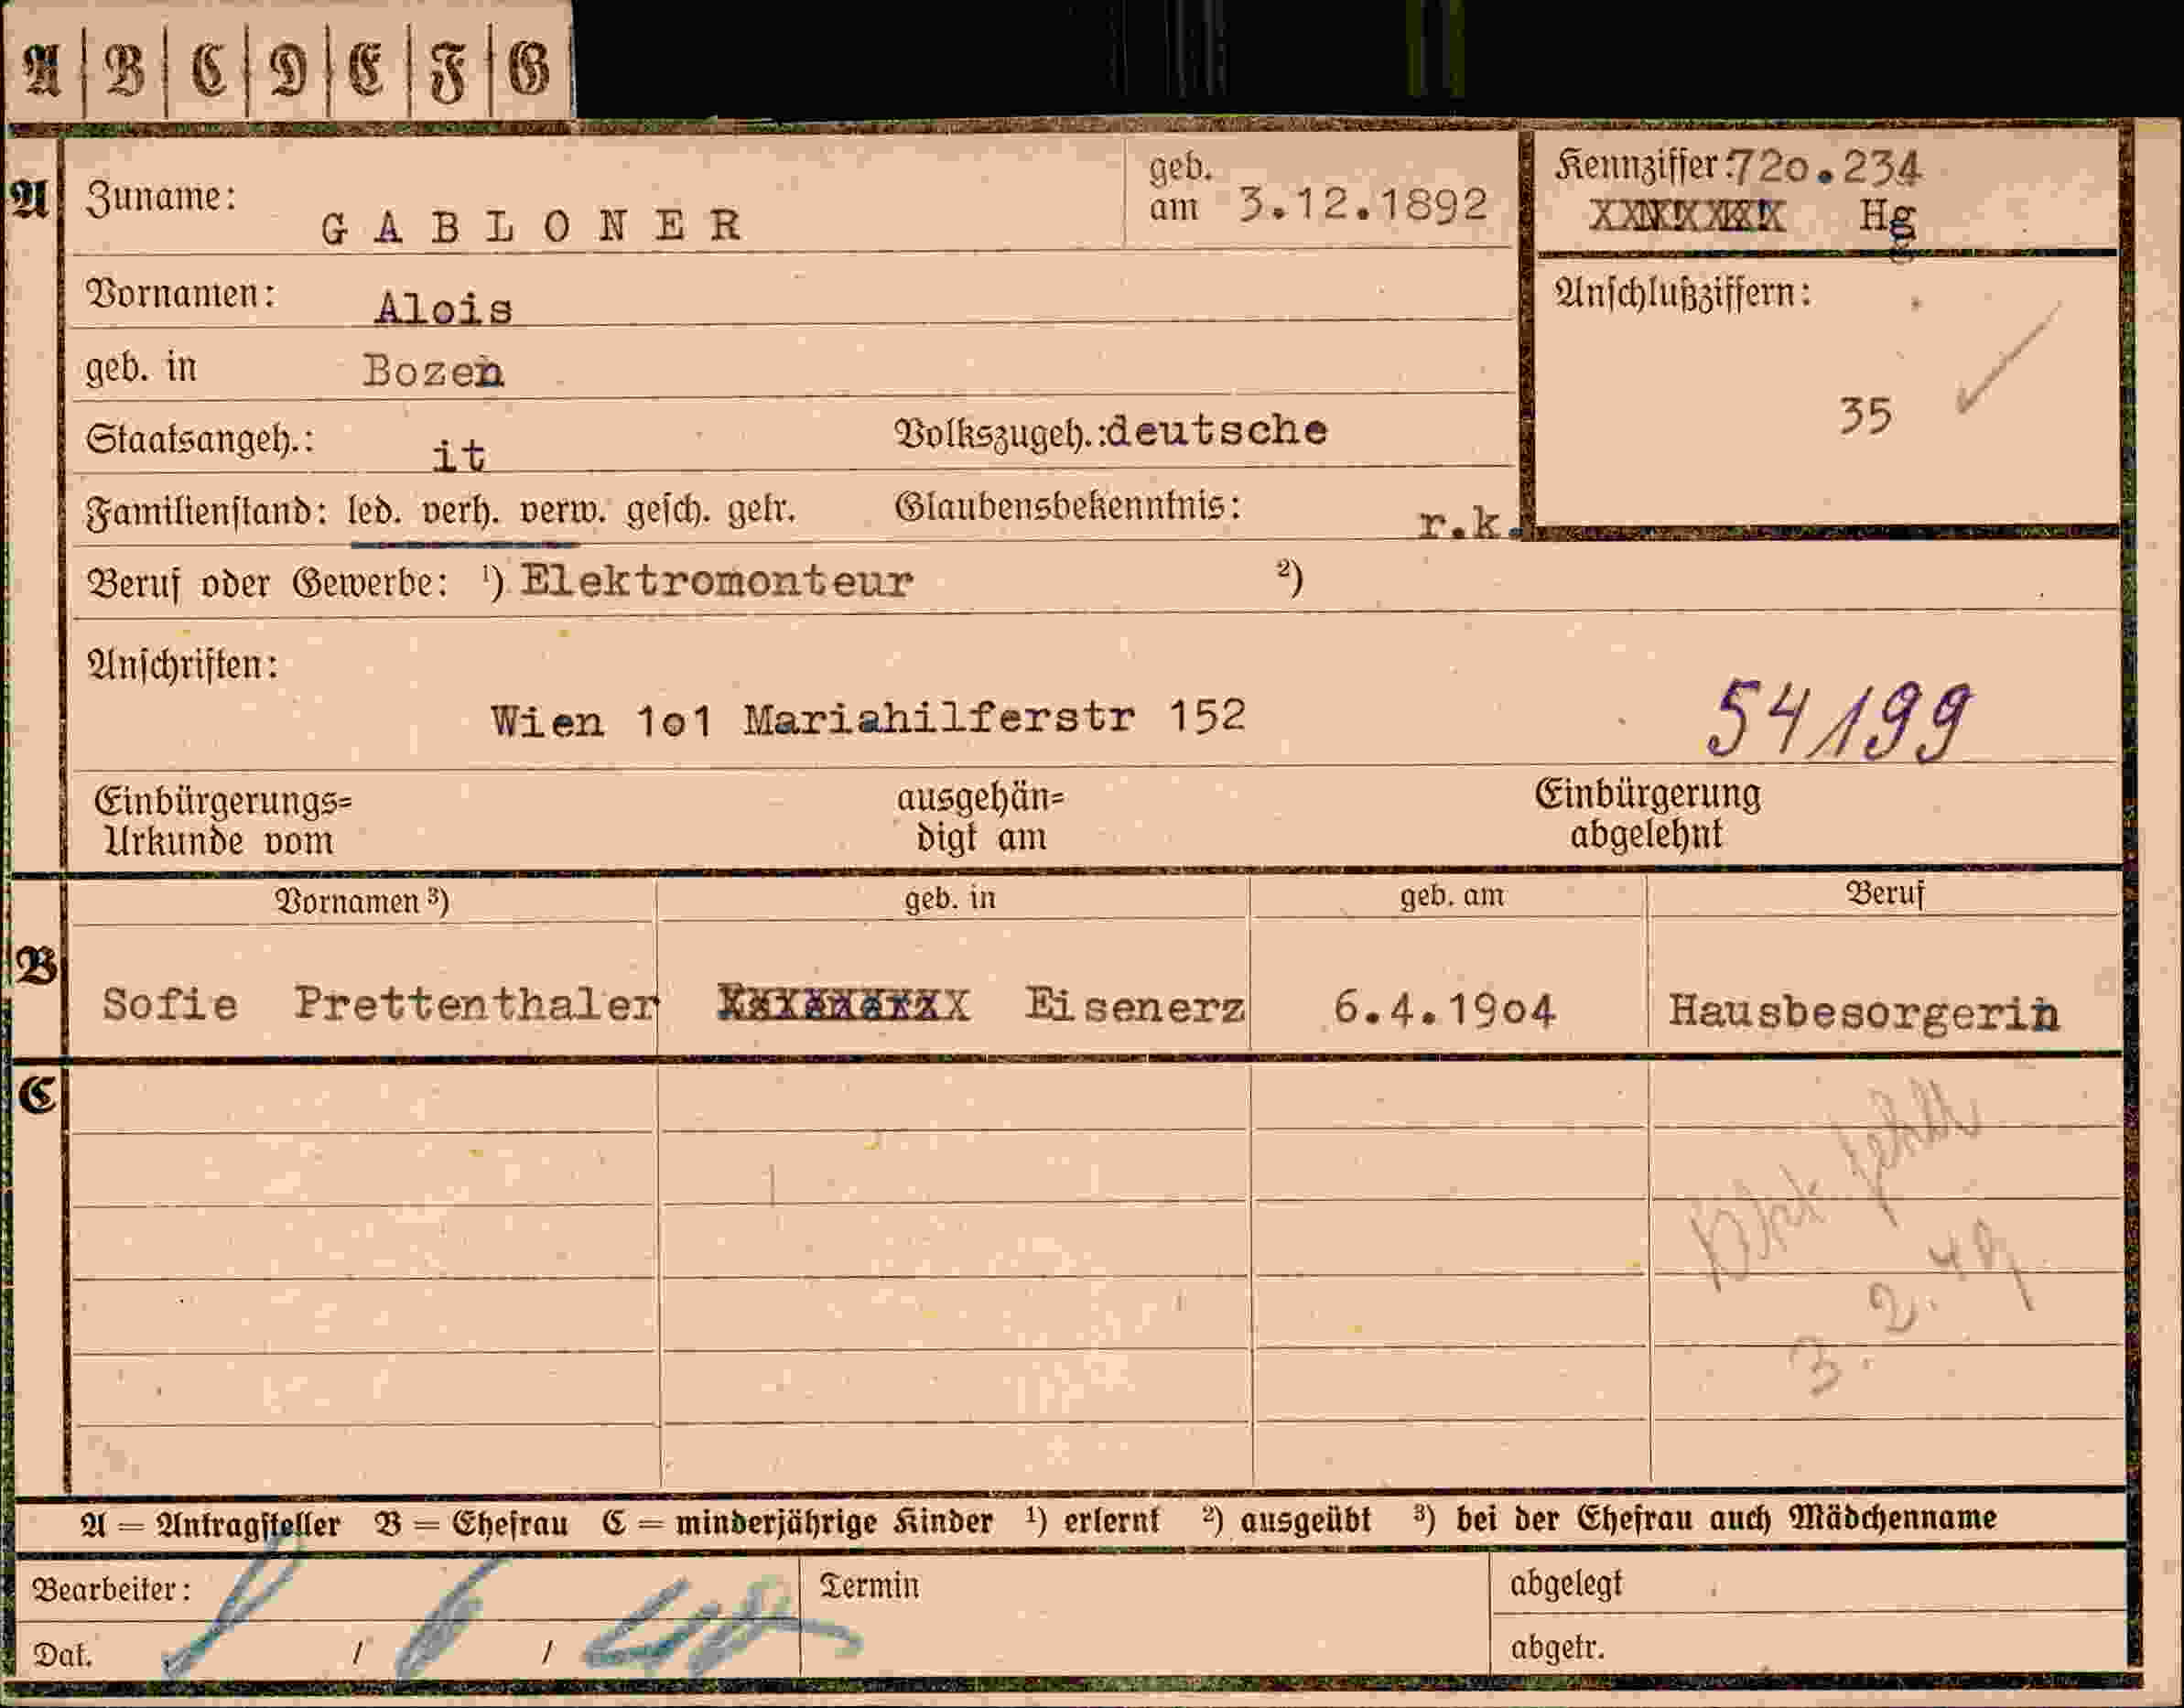 A | B | C | D | E | F | G
A Zuname: GABLONER geb. am 3.12.1892
Kennziffer: 72o.234
Hg
Vornamen: Alois
Anschlußziffern:
geb. in Bozen
35
Staatsangeh.: it Volkszugeh.: deutsche
Familienstand: led. verh. verw. gesch. getr. Glaubensbekenntnis: r.k.
Beruf oder Gewerbe: ¹) Elektromonteur ²)
Anschriften:
Wien 1o1 Mariahilferstr 152
54199
Einbürgerungs= Urkunde vom
ausgehän= digt am
Einbürgerung abgelehnt
Vornamen ³) geb. in geb. am Beruf
B Sofie Prettenthaler Eisenerz 6.4.19o4 Hausbesorgerin
C
fehlt
3. 2. 49
A = Antragsteller B = Ehefrau C = minderjährige Kinder ¹) erlernt ²) ausgeübt ³) bei der Ehefrau auch Mädchenname
Bearbeiter: Termin abgelegt
Dat. / / abgetr.